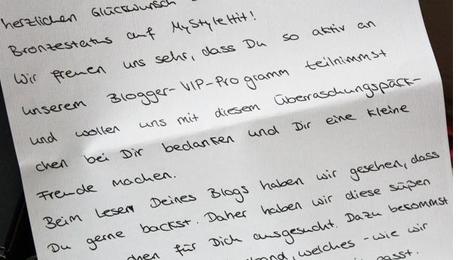 herzlichen Glückwunsch
Bronzestatus auf MyStyleHit!
Wir freuen uns sehr, dass Du so aktiv an
unserem Blogger-VIP-Programm teilnimmst
und wollen uns mit diesem Überraschungspäck-
chen bei Dir bedanken und Dir eine kleine
Freude machen.
Beim lesen Deines Blogs haben wir gesehen, dass
Du gerne backst. Daher haben wir diese süßen
chen für Dich ausgesucht. Dazu bekommst
band, welches - wie wir
passt.